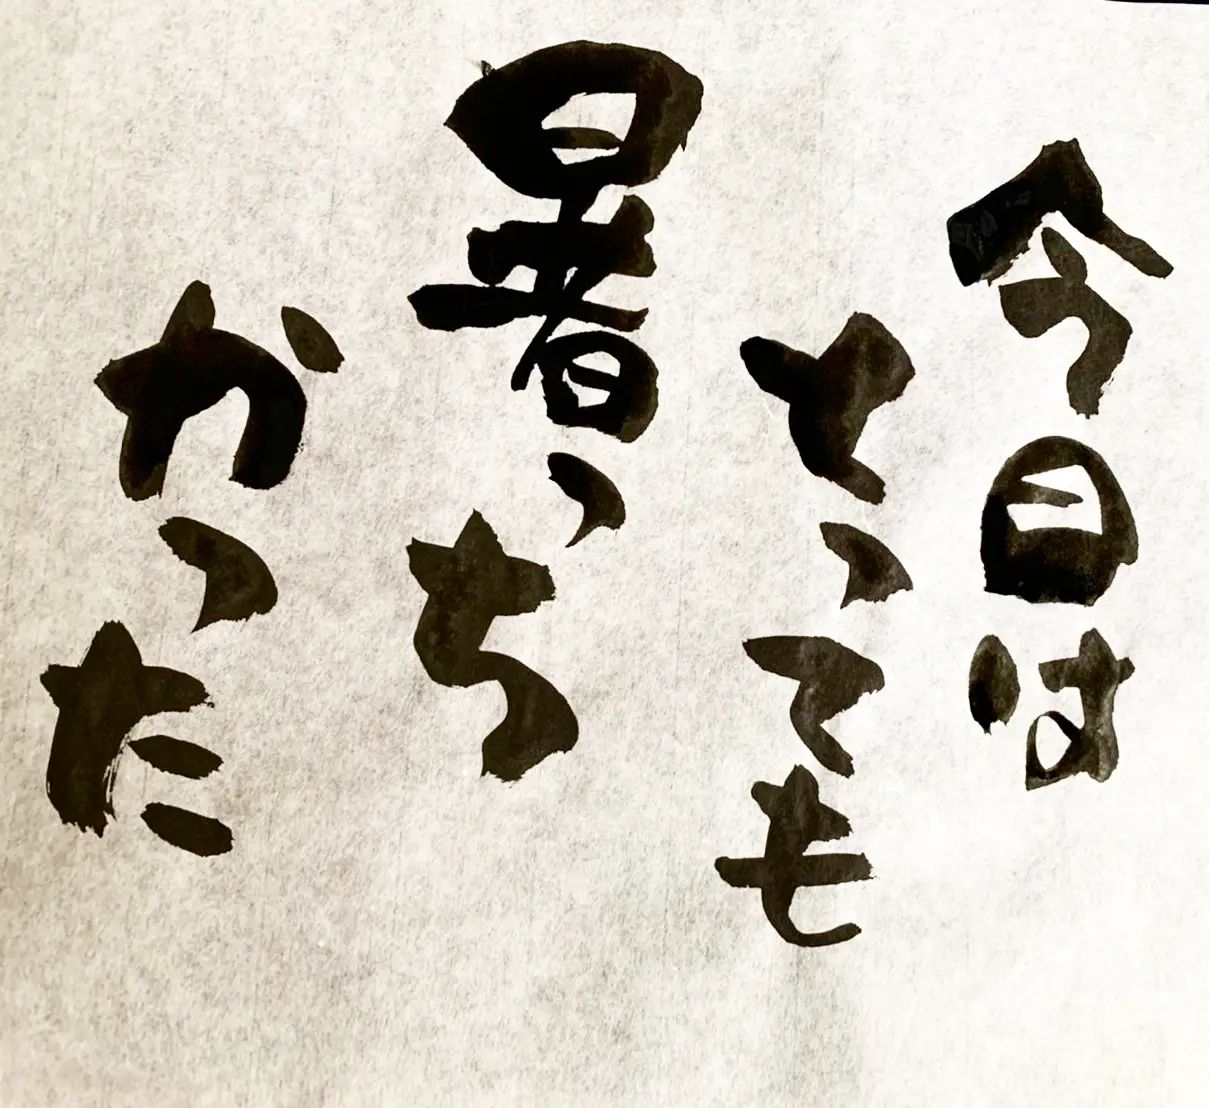 今日は
とっても
暑っち
かった